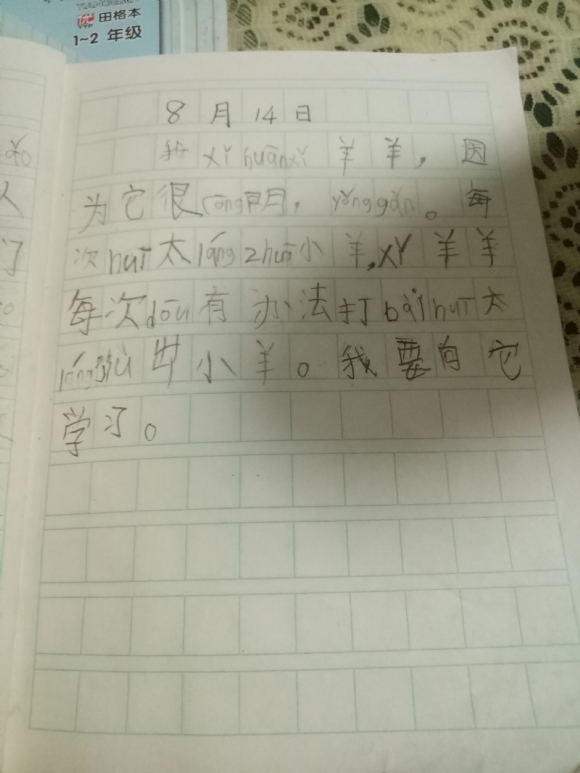 优 田格本
1~2 年级
8月14日
我xǐ huānxǐ羊羊，因
为它很cōng明，yǒnggǎn。每
次huī太láng zhuō小羊，xǐ羊羊
每次dōu有办法打bàihuī太
láng救出小羊。我要向它
学习。
人